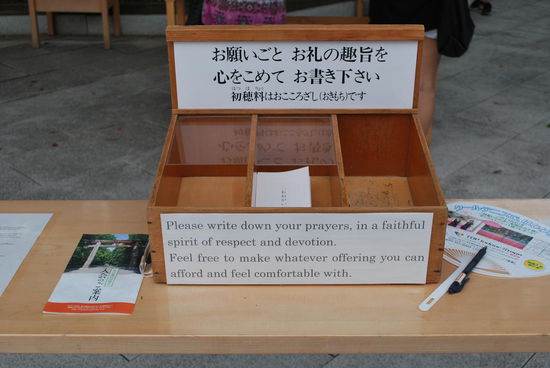 お願いごと お礼の趣旨を
心をこめて お書き下さい
初穂料はおこころざし(おきもち)です
はつ ほ りょう
おねがい
Please write down your prayers, in a faithful
spirit of respect and devotion.
Feel free to make whatever offering you can
afford and feel comfortable with.
入会のご案内